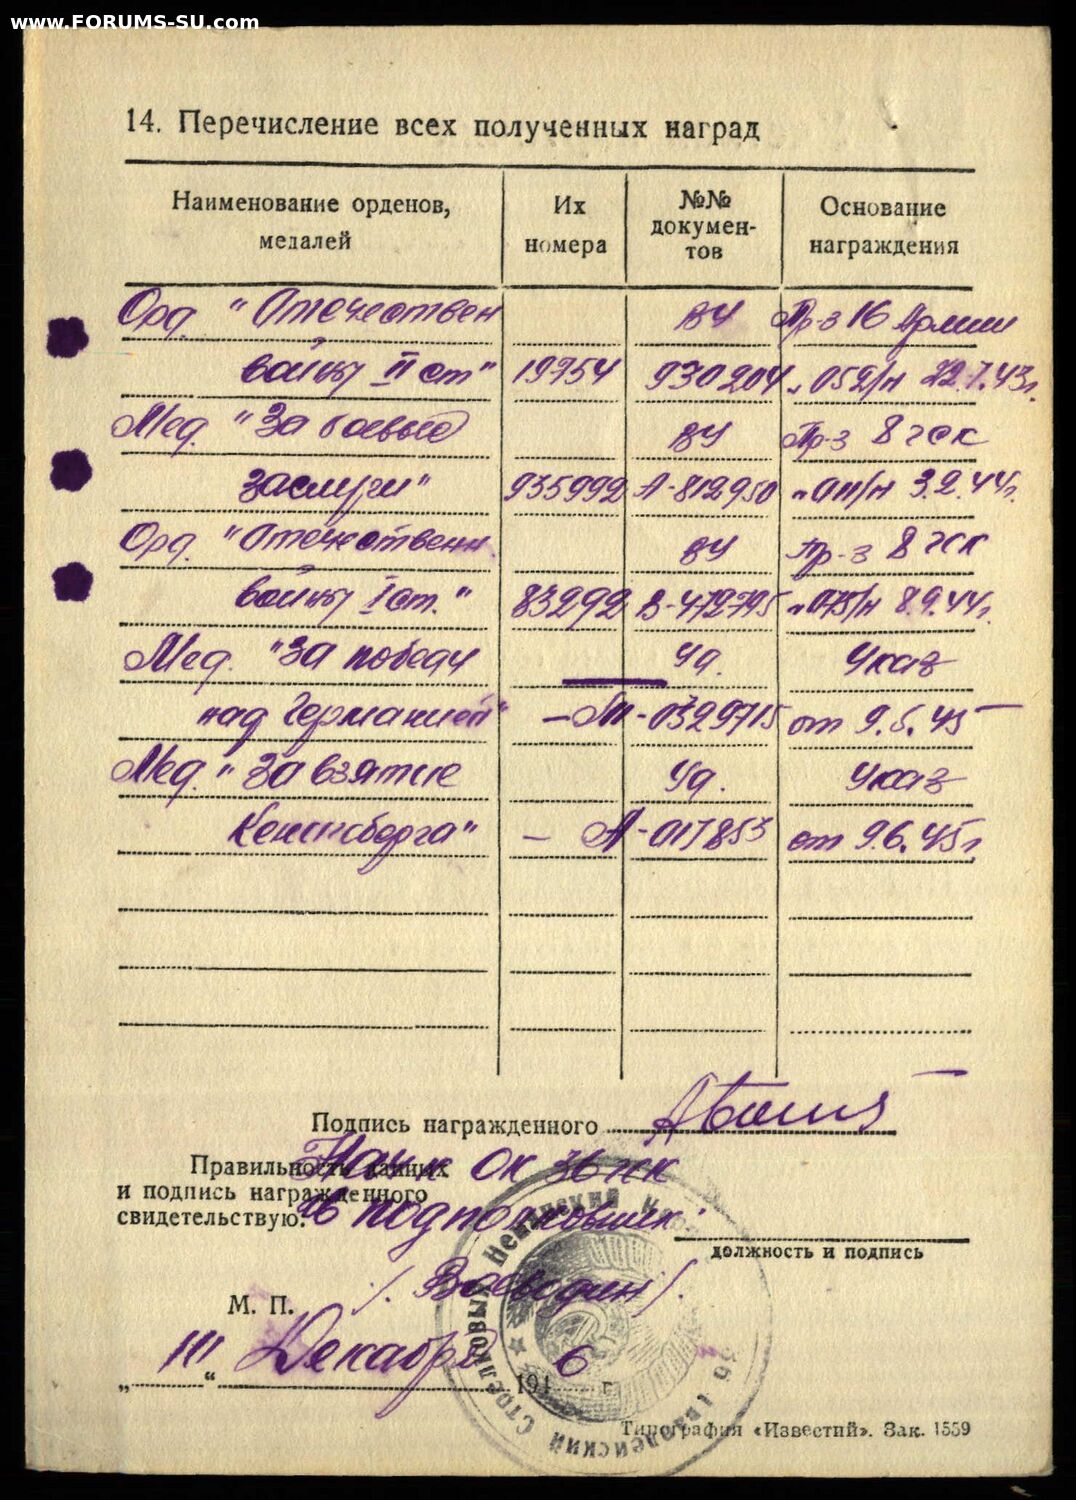 www.FORUMS-SU.com
14. Перечисление всех полученных наград
Наименование орденов, медалей Их номера №№ документов Основание награждения
Орд. "Отечествен ВЧ Пр-з 16 Армии
войны II ст" 19754 930204 052/н 22.7.43г.
Мед. "За боевые ВЧ Пр-з 8 гск
заслуги" 935992 А-812950 "011/н 3.2.44г.
Орд. "Отечественн. ВЧ Пр-з 8 гск
войны I ст." 83292 В-472795 "075/н 8.9.44г.
Мед. "За победу Уд. Указ
над Германией" — 0329715 от 9.5.45
Мед. "За взятие Уд. Указ
Кенигсберга" — А-017853 от 9.6.45г.
Подпись награжденного
Правильность данных
и подпись награжденного
свидетельствую:
Нач-к ОК 36 гск
гв подполковник
должность и подпись
/. Воеводин /.
М. П.
Декабря 1946 г.
Неманский
Типография «Известий». Зак. 1559